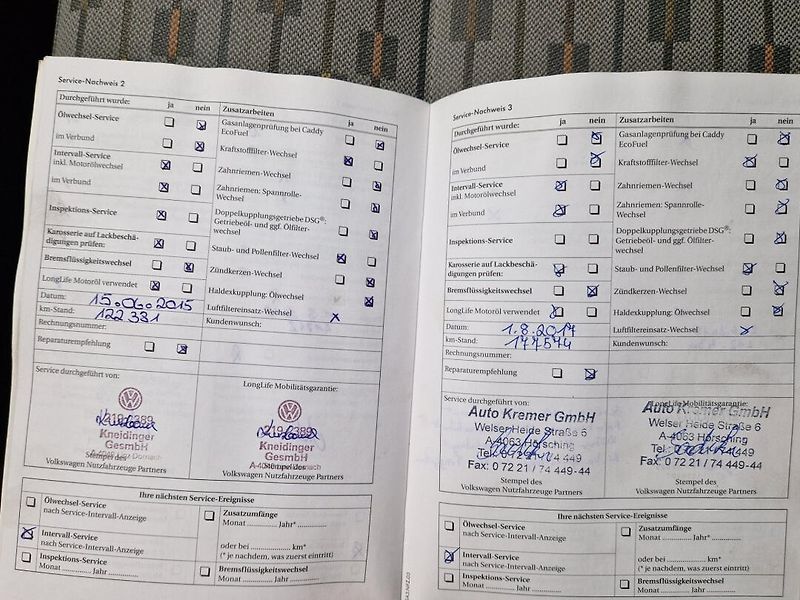 Service-Nachweis 2
Durchgeführt wurde: ja nein Zusatzarbeiten ja nein
Ölwechsel-Service
im Verbund
Intervall-Service
inkl. Motorölwechsel
im Verbund
Inspektions-Service
Karosserie auf Lackbeschä-
digungen prüfen:
Bremsflüssigkeitswechsel
LongLife Motoröl verwendet
Datum: 15.06.2015
km-Stand: 122 331
Rechnungsnummer:
Reparaturempfehlung
Gasanlagenprüfung bei Caddy
EcoFuel
Kraftstofffilter-Wechsel
Zahnriemen-Wechsel
Zahnriemen: Spannrolle-
Wechsel
Doppelkupplungsgetriebe DSG®:
Getriebeöl- und ggf. Ölfilter-
wechsel
Staub- und Pollenfilter-Wechsel
Zündkerzen-Wechsel
Haldexkupplung: Ölwechsel
Luftfiltereinsatz-Wechsel X
Kundenwunsch:
Service durchgeführt von:
Kneidinger
GesmbH
Stempel des
Volkswagen Nutzfahrzeuge Partners
LongLife Mobilitätsgarantie:
Kneidinger
GesmbH
Stempel des
Volkswagen Nutzfahrzeuge Partners
Ihre nächsten Service-Ereignisse
Ölwechsel-Service
nach Service-Intervall-Anzeige
Intervall-Service
nach Service-Intervall-Anzeige
Inspektions-Service
Monat ........... Jahr ...............
Zusatzumfänge
Monat ........... Jahr* ...............
oder bei ............... km*
(* je nachdem, was zuerst eintritt)
Bremsflüssigkeitswechsel
Monat ........... Jahr ...............
Service-Nachweis 3
Durchgeführt wurde: ja nein Zusatzarbeiten ja nein
Ölwechsel-Service
im Verbund
Intervall-Service
inkl. Motorölwechsel
im Verbund
Inspektions-Service
Karosserie auf Lackbeschä-
digungen prüfen:
Bremsflüssigkeitswechsel
LongLife Motoröl verwendet
Datum: 1.8.2017
km-Stand: 177574
Rechnungsnummer:
Reparaturempfehlung
Gasanlagenprüfung bei Caddy
EcoFuel
Kraftstofffilter-Wechsel
Zahnriemen-Wechsel
Zahnriemen: Spannrolle-
Wechsel
Doppelkupplungsgetriebe DSG®:
Getriebeöl- und ggf. Ölfilter-
wechsel
Staub- und Pollenfilter-Wechsel
Zündkerzen-Wechsel
Haldexkupplung: Ölwechsel
Luftfiltereinsatz-Wechsel
Kundenwunsch:
Service durchgeführt von:
Auto Kremer GmbH
Welser Heide Straße 6
A-4063 Hörsching
Tel. 0 72 21 / 74 449
Fax: 0 72 21 / 74 449-44
Stempel des
Volkswagen Nutzfahrzeuge Partners
LongLife Mobilitätsgarantie:
Auto Kremer GmbH
Welser Heide Straße 6
A-4063 Hörsching
Tel. 0 72 21 / 74 449
Fax: 0 72 21 / 74 449-44
Stempel des
Volkswagen Nutzfahrzeuge Partners
Ihre nächsten Service-Ereignisse
Ölwechsel-Service
nach Service-Intervall-Anzeige
Intervall-Service
nach Service-Intervall-Anzeige
Inspektions-Service
Monat ........... Jahr ...............
Zusatzumfänge
Monat ........... Jahr* ...............
oder bei ............... km*
(* je nachdem, was zuerst eintritt)
Bremsflüssigkeitswechsel
Monat ........... Jahr ...............